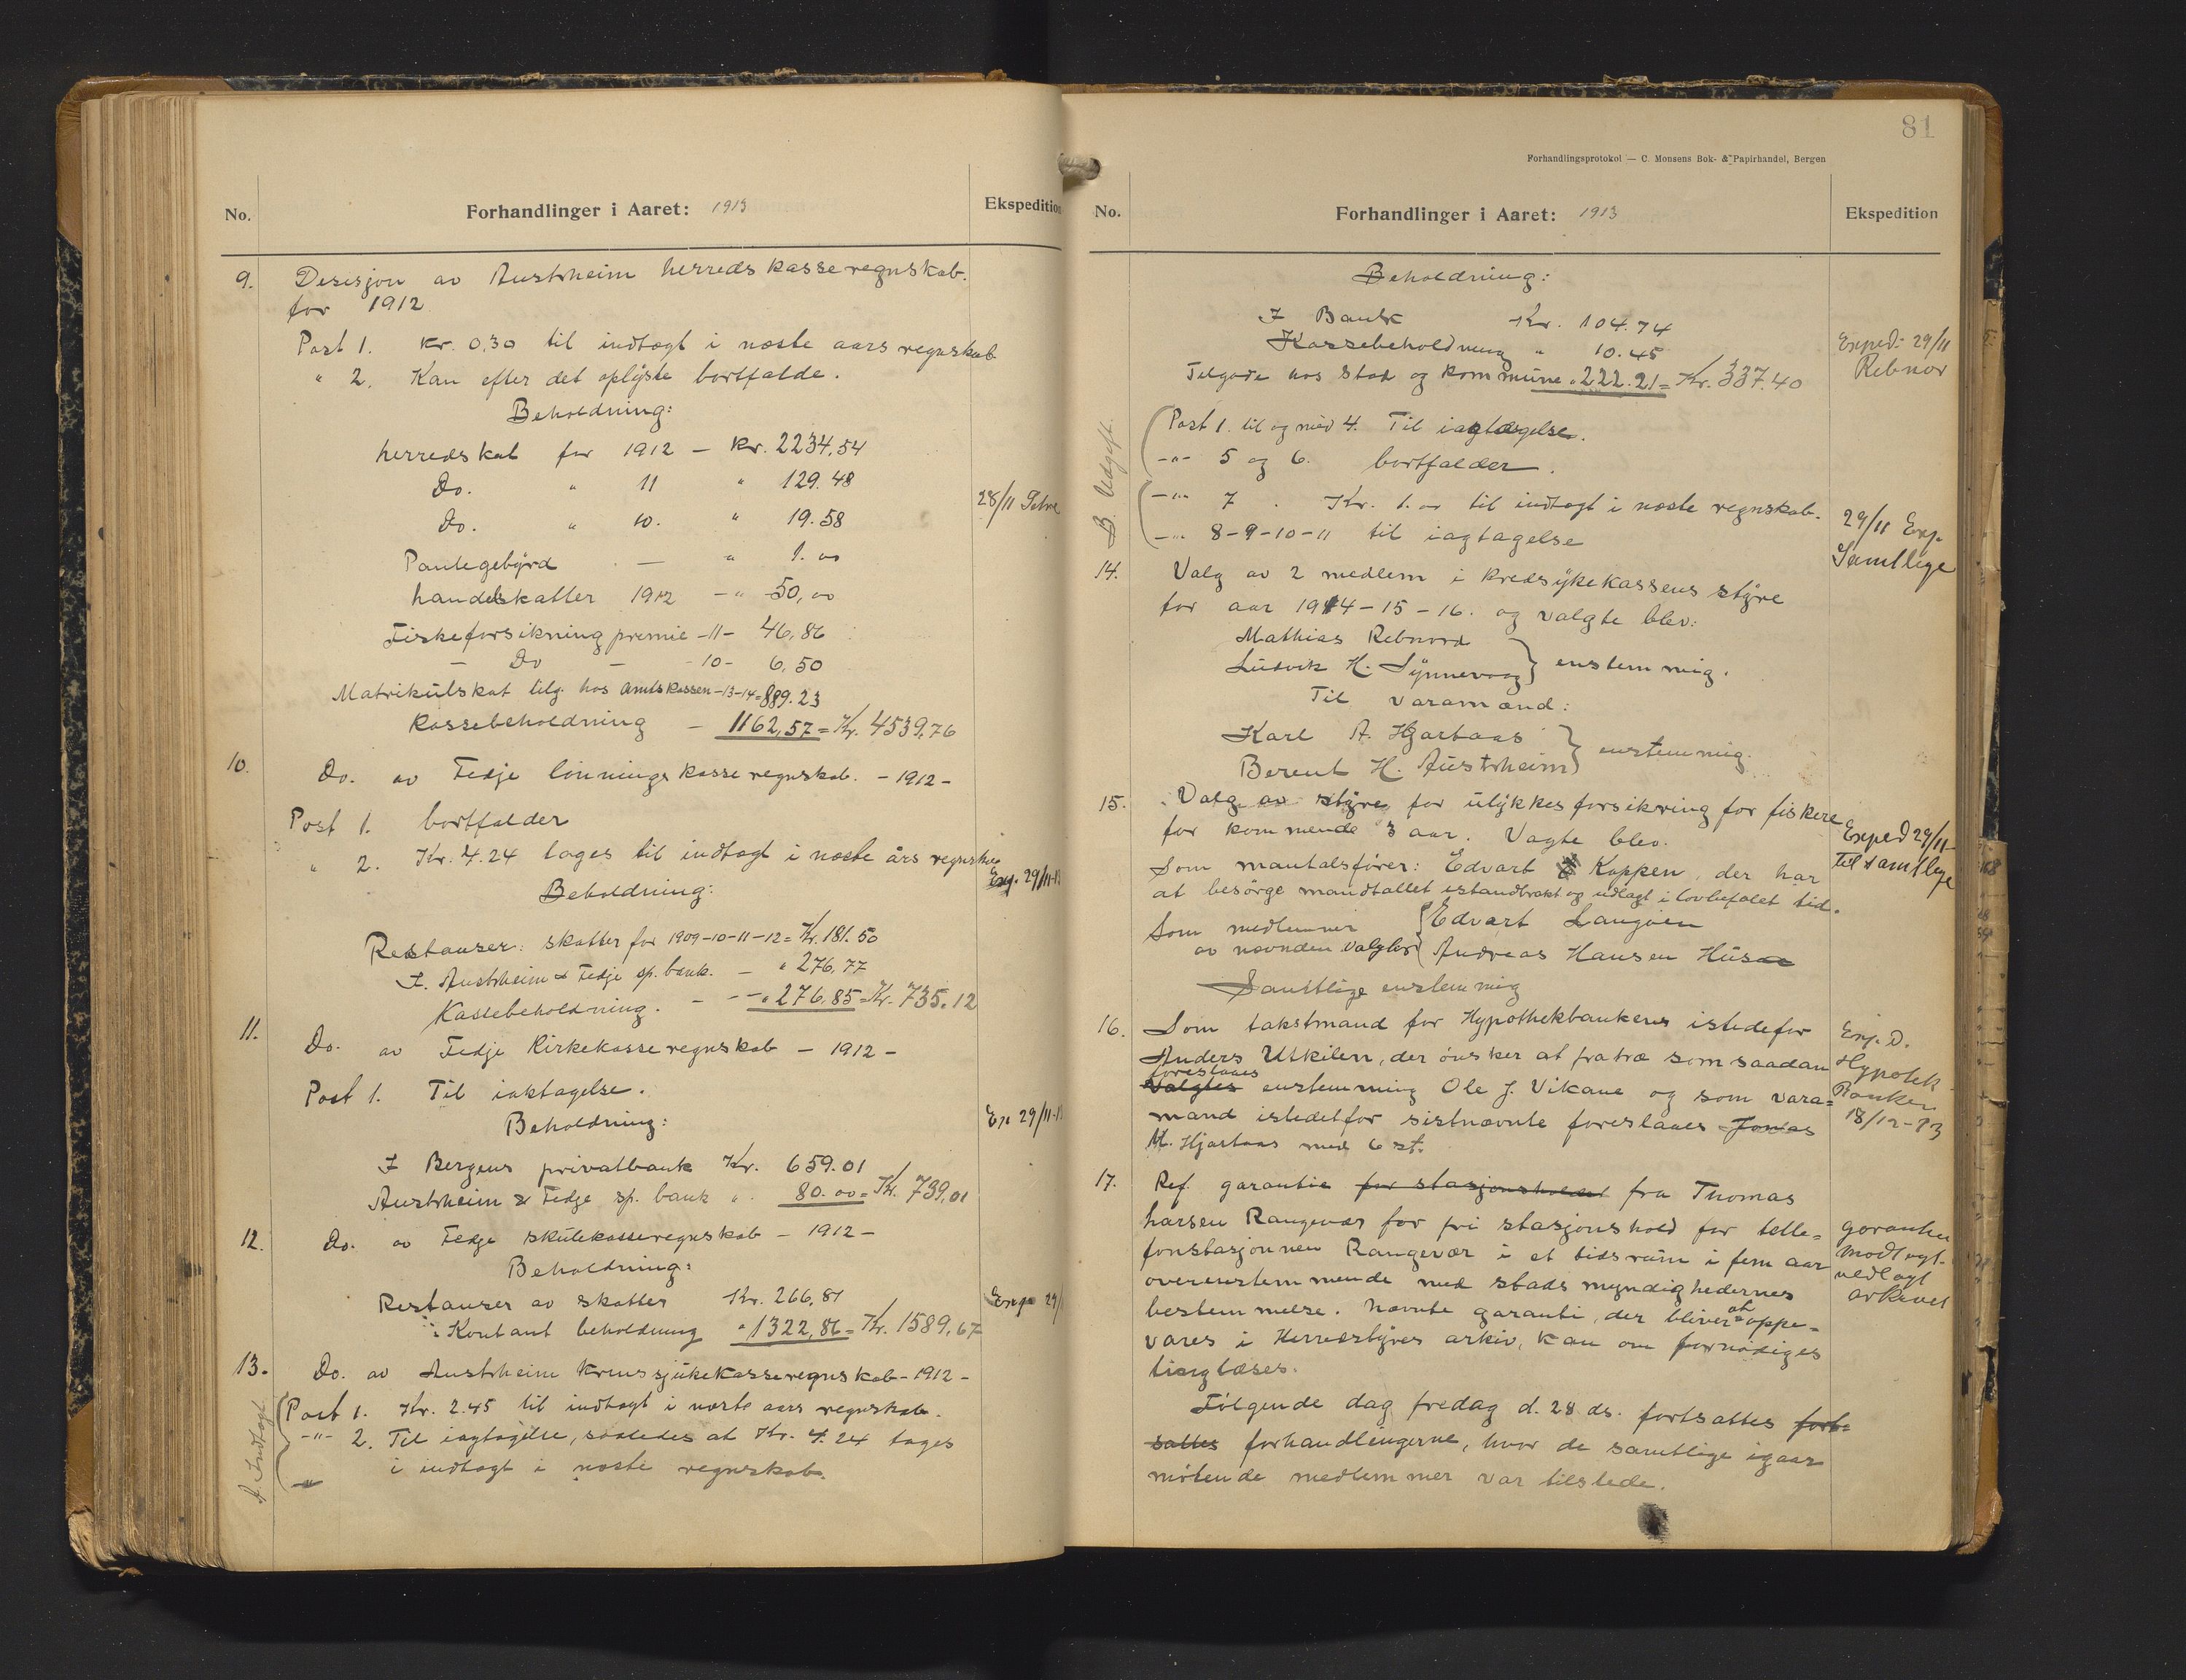 No.
Forhandlinger i Aaret: 1913
Ekspedition
9. Desisjon av Austrheim herredskasseregnskab.
for 1912
Post 1. Kr. 0,30 til indtægt i næste aars regnskab
" 2. Kan efter det oplyste bortfalde.
Beholdning:
herredskat for 1912 — Kr. 2234,54
Do. " 11 " 129.48
28/11 
Do. " 10. " 19.58
Pantegebyrd — " 1.00
handelskatter 1912 - " 50,00
Fiskeforsikning premie -11- 46,86
— Do — -10- 6,50
Matrikulskat tilg. hos Amtskassen -13-14= 889.23
Kassebeholdning — 1162,57 = Kr. 4539,76
10. Do. av Fedje lönningskasseregnskab. - 1912 -
Post 1. bortfalder
" 2. Kr. 4.24 tages til indtægt i næste års regnskab
Exp. 29/11-13
Beholdning:
Restanser: skatter for 1909-10-11-12 = Kr. 181.50
I. Austrheim & Fedje sp. bank. — " 276,77
Kassebeholdning. - - - " 276.85 = Kr. 735.12
11. Do. av Fedje Kirkekasseregnskab - 1912 -
Post 1. Til iaktagelse.
Ex 29/11-13
Beholdning:
I Bergens privatbank Kr. 659.01
Austrheim & Fedje sp. bank " 80.00 = Kr. 739,01
12. Do. av Fedje skulekasseregnskab - 1912 -
Beholdning:
Restanser av skatter Kr. 266,81
Exp 29/
Kontant beholdning " 1322,86 = Kr. 1589,67
13. Do. av Austrheim krinssjukekasseregnskab - 1912 -
A. Indtægt
Post 1. Kr. 2.45 til indtægt i næste aars regnskab.
-"- 2. Til iagtagelse, saaledes at Kr. 4.24 tages
i indtægt i næste regnskab.
81
Forhandlingsprotokol — C. Monsens Bok- & Papirhandel, Bergen
No.
Forhandlinger i Aaret: 1913
Ekspedition
Beholdning:
I Bank Kr. 104.74
Kassebeholdning " 10.45
Exped. 29/11
Rebnor
Tilgode hos Stat og kommune " 222.21 = Kr. 337.40
B. Udgift.
Post 1. til og med 4. Til iagtagelse.
-"- 5 og 6. bortfalder.
-"- 7. Kr. 1.00 til indtægt i næste regnskab.
-"- 8-9-10-11 til iagtagelse
29/11 Exp.
Samtlige
14. Valg av 2 medlem i kredsykekassens styre
for aar 1914-15-16. og valgte blev:
Mathias Rebnord
Ludvik H. Synnevaag } enstemmig.
Til varamænd:
Karl A. Hjartaas
Berent H. Austrheim } enstemmig.
15. Valg av styre for ulykkesforsikring for fiskere
for kommende 3 aar. Vagte blev.
Exped 29/11-
til samtlige
Som mantalsfører: Edvart Koppen, der har
at besörge mandtallet istandbrakt og udlagt i lovbefalet tid.
Som medlemmer { Edvart Langöen
av nævnden valgtes { Andreas Hansen Husa
Samtlige enstemmig
16. Som takstmand for Hypothekbankens istedefor
Anders Utkilen, der önsker at fratræ som saadan
foreslaaes
valgtes enstemmig Ole J. Vikane og som vara=
mand istedetfor sistnævnte foreslaaes Jonas
M. Hjartaas med 6 st.
Exp. D.
Hypotek-
Banken
18/12-13
17. Ref. garantie for stasjonshold fra Thomas
hansen Rangevær for fri stasjonshold for telle=
fonstasjonnen Rangevær i et tidsrum i fem aar
overensstemmende med stads myndighedernes
bestemmelse. Nævnte garanti, der bliver at oppe-
vares i Herredstyres arkiv, kan om fornödiges
tinglæses.
garantien
modtagt
vedlagt
arkivet
Fölgende dag fredag d. 28 ds. fortsattes fort-
sattes forhandlingerne, hvor de samtlige igaar
mötende medlemmer var tilstede.